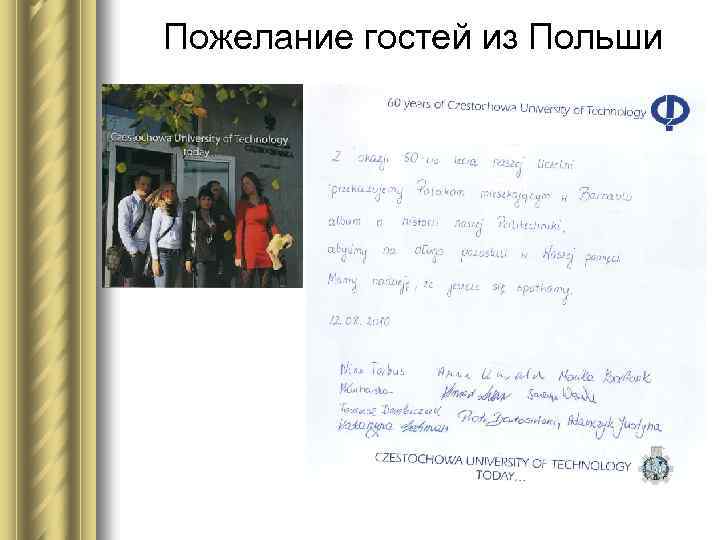 Пожелание гостей из Польши
Czestochowa University of Technology
today...
60 years of Czestochowa University of Technology
Z okazji 60-cio lecia naszej Uczelni
przekazujemy Polakom mieszkającym w Barnaulu
album o historii naszej Politechniki,
abyśmy na długo pozostali w Waszej pamięci.
Mamy nadzieję, że jeszcze się spotkamy.
12.08.2010
Nina Torbus Anna Monika
Tomasz
Katarzyna Piotr Adamczyk Justyna
CZESTOCHOWA UNIVERSITY OF TECHNOLOGY
TODAY...